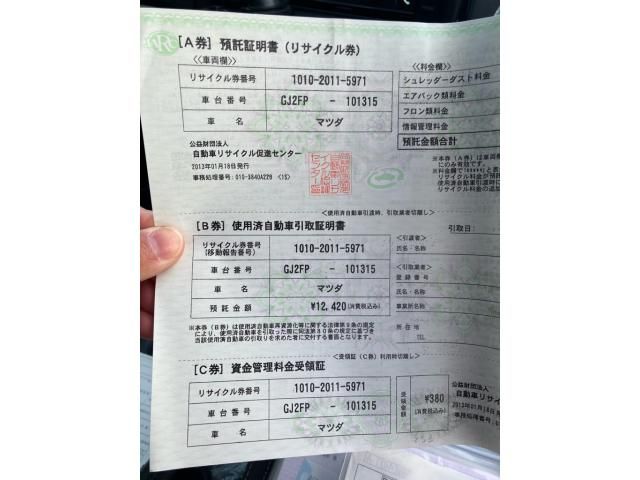 [A券] 預託証明書(リサイクル券)
≪車両欄≫
リサイクル券番号 1010-2011-5971
車台番号 GJ2FP - 101315
車名 マツダ
≪料金欄≫
シュレッダーダスト料金
エアバッグ類料金
フロン類料金
情報管理料金
預託金額合計
公益財団法人
自動車リサイクル促進センター
2013年01月18日発行
事務処理番号:010-3840A229 <1S>
※本券(A券)は車両欄
にのみ有効です。
<使用済自動車引渡時、引取業者切離し>
[B券] 使用済自動車引取証明書
リサイクル券番号
(移動報告番号)
1010-2011-5971
車台番号 GJ2FP - 101315
車名 マツダ
預託金額 ¥12,420(消費税込み)
引取日:
<引渡者>
氏名・名称
<引取業者>
登録番号
氏名・名称
事業所名称
所在地
TEL
※本券(B券)は使用済自動車再資源化等に関する法律第9条の規定
により、使用済自動車を引取った際に同法第80条の規定に基づき
当該使用済自動車の引取りを求めた者に交付する書面となります。
<受領証(C券)利用時切離し>
[C券] 資金管理料金受領証
リサイクル券番号 1010-2011-5971
車台番号 GJ2FP - 101315
車名 マツダ
受領金額 ¥380
(消費税込み)
公益財団法人
自動車リサイ
2013年01月18日
事務処理番号: